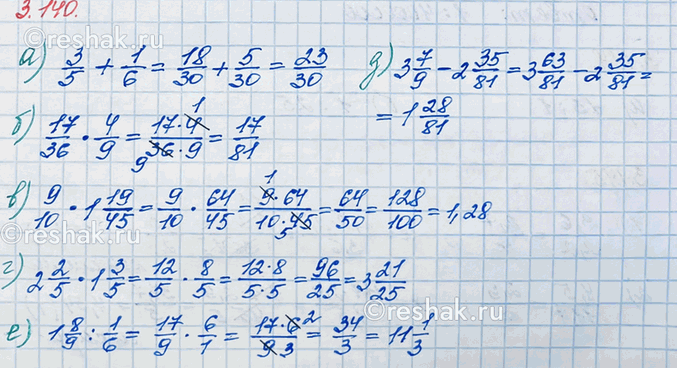 3.140.
а) 3/5 + 1/6 = 18/30 + 5/30 = 23/30
д) 3 7/9 - 2 35/81 = 3 63/81 - 2 35/81 =
= 1 28/81
б) 17/36 · 4/9 = 17·4/36·9 = 17/81
1
9
в) 9/10 · 1 19/45 = 9/10 · 64/45 = 9·64/10·45 = 64/50 = 128/100 = 1,28
1
5
г) 2 2/5 · 1 3/5 = 12/5 · 8/5 = 12·8/5·5 = 96/25 = 3 21/25
е) 1 8/9 : 1/6 = 17/9 · 6/1 = 17·6/9 = 34/3 = 11 1/3
2
3
©reshak.ru
©reshak.ru
©reshak.ru
©reshak.ru